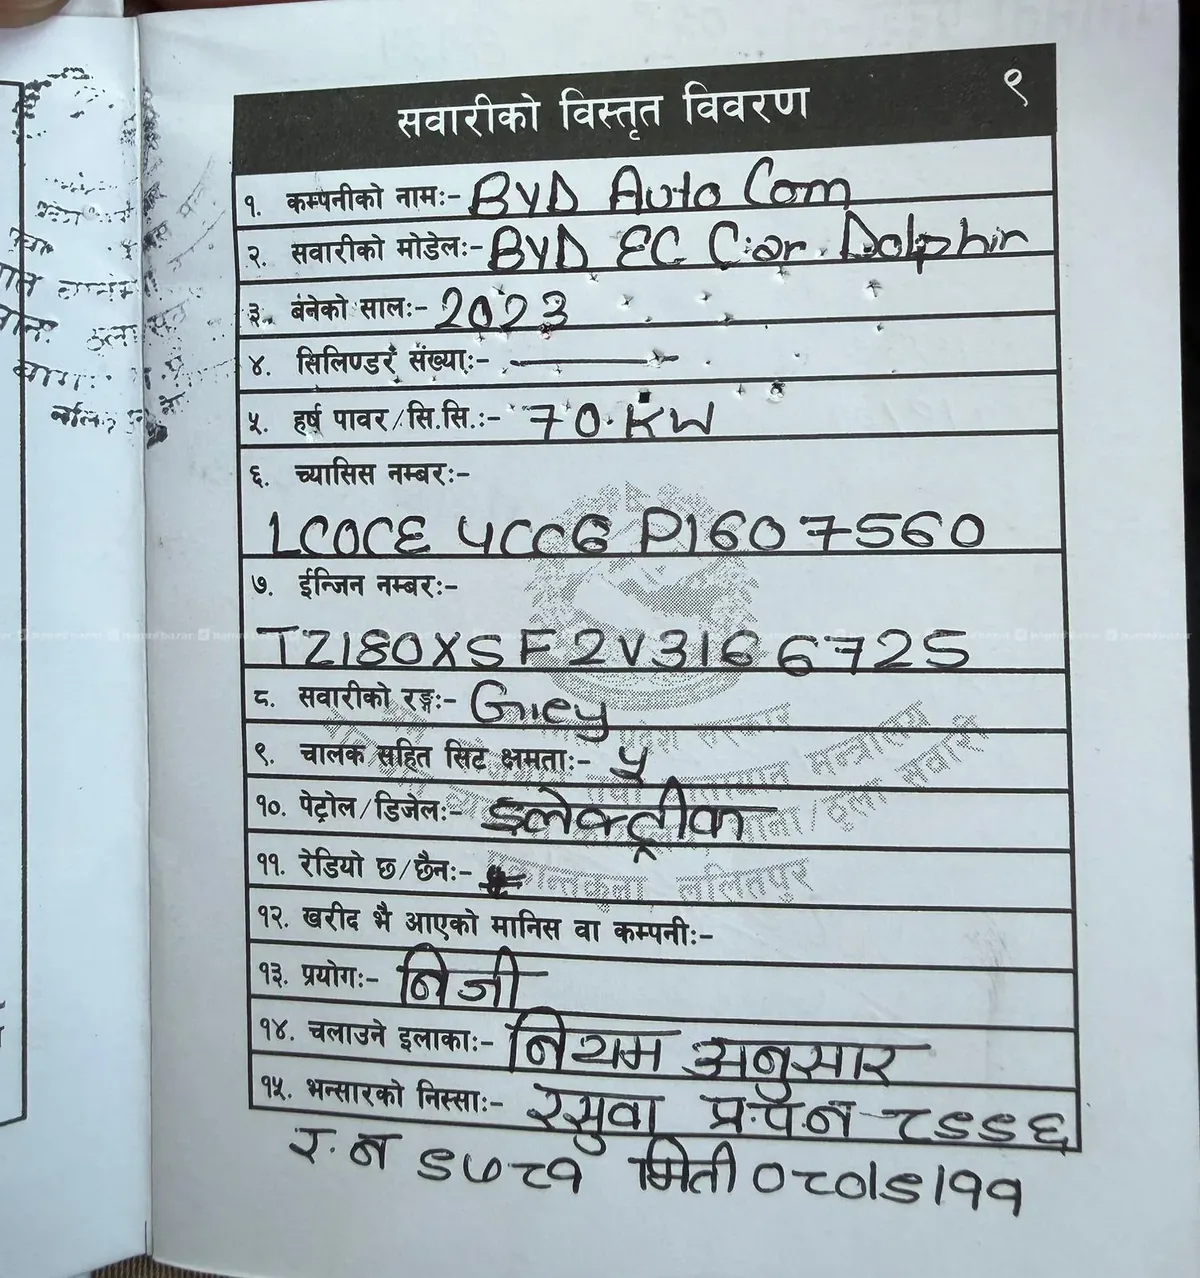 सवारीको विस्तृत विवरण ९
१. कम्पनीको नाम:- BYD Auto Com
२. सवारीको मोडेल:- BYD EC Car Dolphin
३. बनेको साल:- 2023
४. सिलिण्डर संख्या:- —
५. हर्ष पावर/सि.सि.:- 70.KW
६. च्यासिस नम्बर:-
LC0CE 4CC6 P1607560
७. ईन्जिन नम्बर:-
TZ180XSF2V3166725
८. सवारीको रङ्ग:- Grey
९. चालक सहित सिट क्षमता:- ५
१०. पेट्रोल/डिजेल:- इलेक्ट्रीक
११. रेडियो छ/छैन:-
१२. खरीद भै आएको मानिस वा कम्पनी:-
१३. प्रयोग:- निजी
१४. चलाउने इलाका:- नियम अनुसार
१५. भन्सारको निस्सा:- रसुवा प्र.प.न ८९९६
र.न ९७८१ मिती ०८०/९/११
ललितपुर